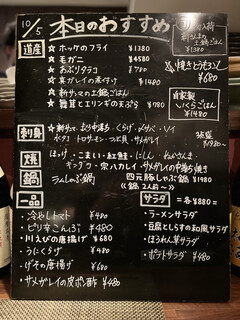 10/5 本日のおすすめ
道産
☆ ホッケのフライ ¥1380
☆ 毛ガニ ¥4580
☆ あぶりタラコ ¥780
☆ 真ガレイの煮付け ¥1480
☆ 新サンマの土鍋ごはん
☆ 舞茸とエリンギの天ぷら ¥980
土鍋ごはん ¥1480
焼きとうもろこし ¥680
自家製
いくらごはん
¥1480
刺身
ホタテ・トロサーモン・つぶ貝・サメガレイ
焼
ほっけ・こまい・紅鮭・にしん
キンキ・宗八カレイ・サメガレイ中落ち焼き
鍋
ラムしゃぶ鍋 四元豚しゃぶ鍋 ¥1480
≪鍋 2人前〜≫
一品
・冷やしトマト ¥480
・ピリ辛こんぶ ¥480
・川えびの唐揚げ ¥680
・うにくらげ ¥480
・げその唐揚げ ¥680
・サメガレイの皮ポン酢 ¥480
サラダ =各¥880=
・ラーメンサラダ
・豆腐としらすの和風サラダ
・ほうれん草サラダ
・ポテトサラダ ¥480